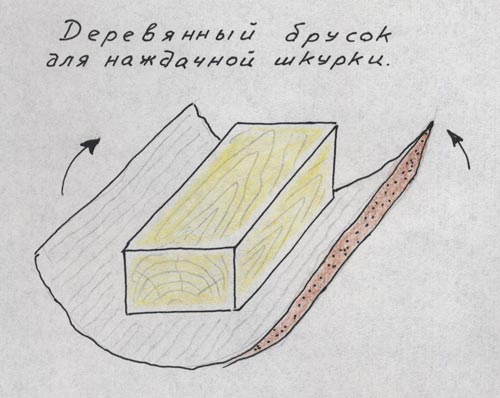 Деревянный брусок
для наждачной шкурки.